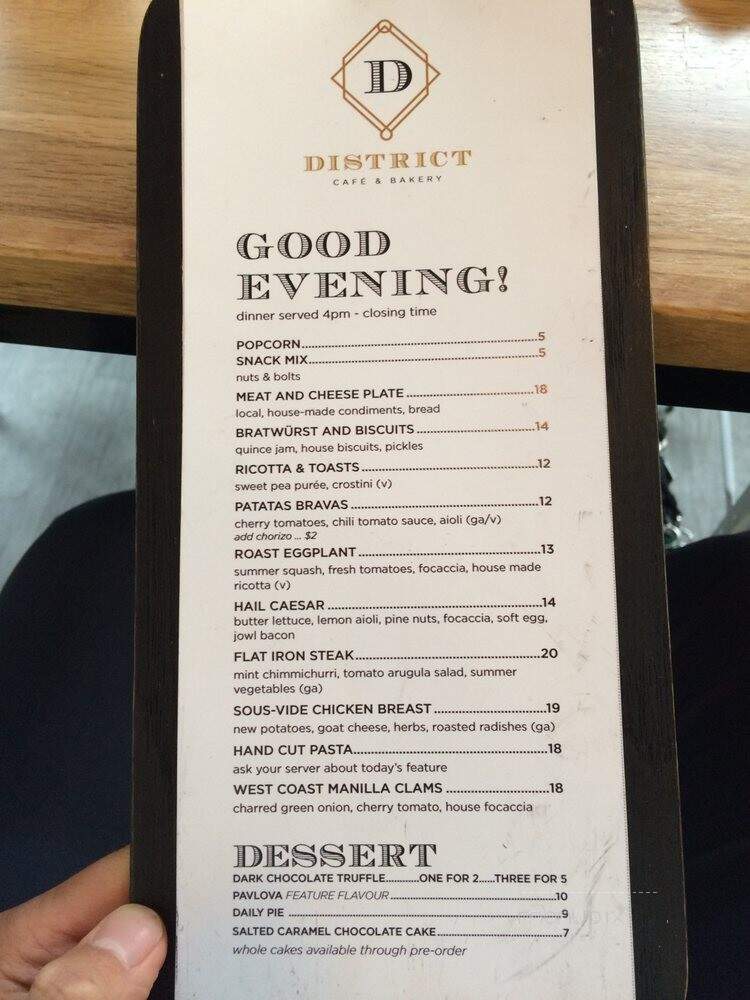 D
DISTRICT
CAFÉ & BAKERY
GOOD
EVENING!
dinner served 4pm - closing time
POPCORN.....5
SNACK MIX.....5
nuts & bolts
MEAT AND CHEESE PLATE.....18
local, house-made condiments, bread
BRATWÜRST AND BISCUITS.....14
quince jam, house biscuits, pickles
RICOTTA & TOASTS.....12
sweet pea purée, crostini (v)
PATATAS BRAVAS.....12
cherry tomatoes, chili tomato sauce, aioli (ga/v)
add chorizo ... $2
ROAST EGGPLANT.....13
summer squash, fresh tomatoes, focaccia, house made
ricotta (v)
HAIL CAESAR.....14
butter lettuce, lemon aioli, pine nuts, focaccia, soft egg,
jowl bacon
FLAT IRON STEAK.....20
mint chimmichurri, tomato arugula salad, summer
vegetables (ga)
SOUS-VIDE CHICKEN BREAST.....19
new potatoes, goat cheese, herbs, roasted radishes (ga)
HAND CUT PASTA.....18
ask your server about today's feature
WEST COAST MANILLA CLAMS.....18
charred green onion, cherry tomato, house focaccia
DESSERT
DARK CHOCOLATE TRUFFLE.....ONE FOR 2.....THREE FOR 5
PAVLOVA FEATURE FLAVOUR.....10
DAILY PIE.....9
SALTED CARAMEL CHOCOLATE CAKE.....7
whole cakes available through pre-order